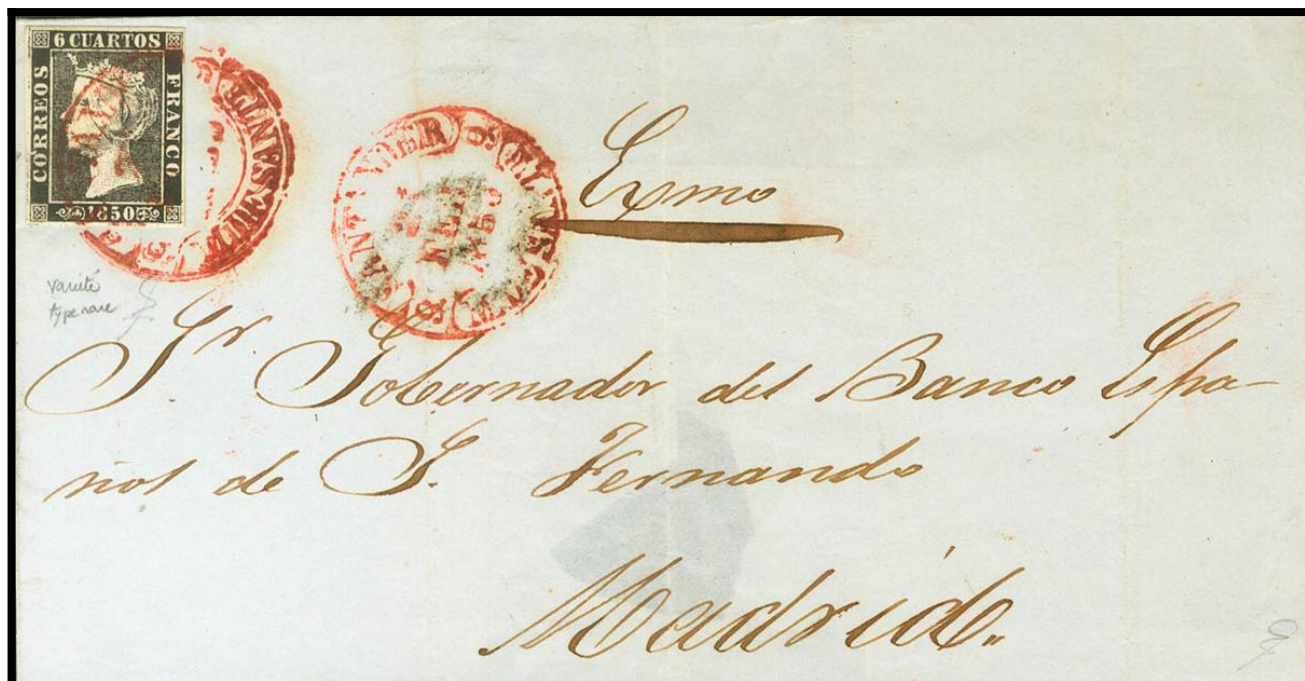 6 CUARTOS
CORREOS
FRANCO
1850
SANTANDER
FEB
Exmo
varieté
type rare
Sr Gobernador del Banco Espa-
ñol de S. Fernando
Madrid.